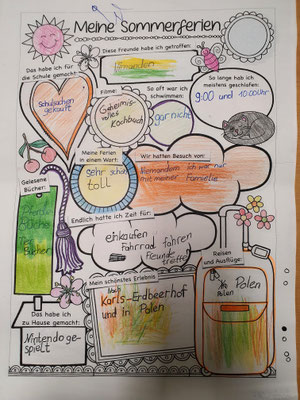 Meine Sommerferien
Diese Freunde habe ich getroffen:
Das habe ich für
die Schule gemacht:
Schulsachen
gekauft
Filme:
Geheimnis-
volles
Kochbuch
So oft war ich
schwimmen:
gar nicht
So lange hab ich
meistens geschlafen:
9:00 und 10:00 Uhr
Meine Ferien
in einem Wort:
sehr schön
toll
Wir hatten Besuch von:
Niemandem ich war nur
mit meiner Familie
Gelesene
Bücher:
Pferde
Bücher
Endlich hatte ich Zeit für:
einkaufen
Fahrrad fahren
Freunde
treffen
Reisen
und Ausflüge:
in Polen
Polen
Mein schönstes Erlebnis
Karls-Erdbeerhof
und in Polen
Das habe ich
zu Hause gemacht:
Nintendo ge-
spielt